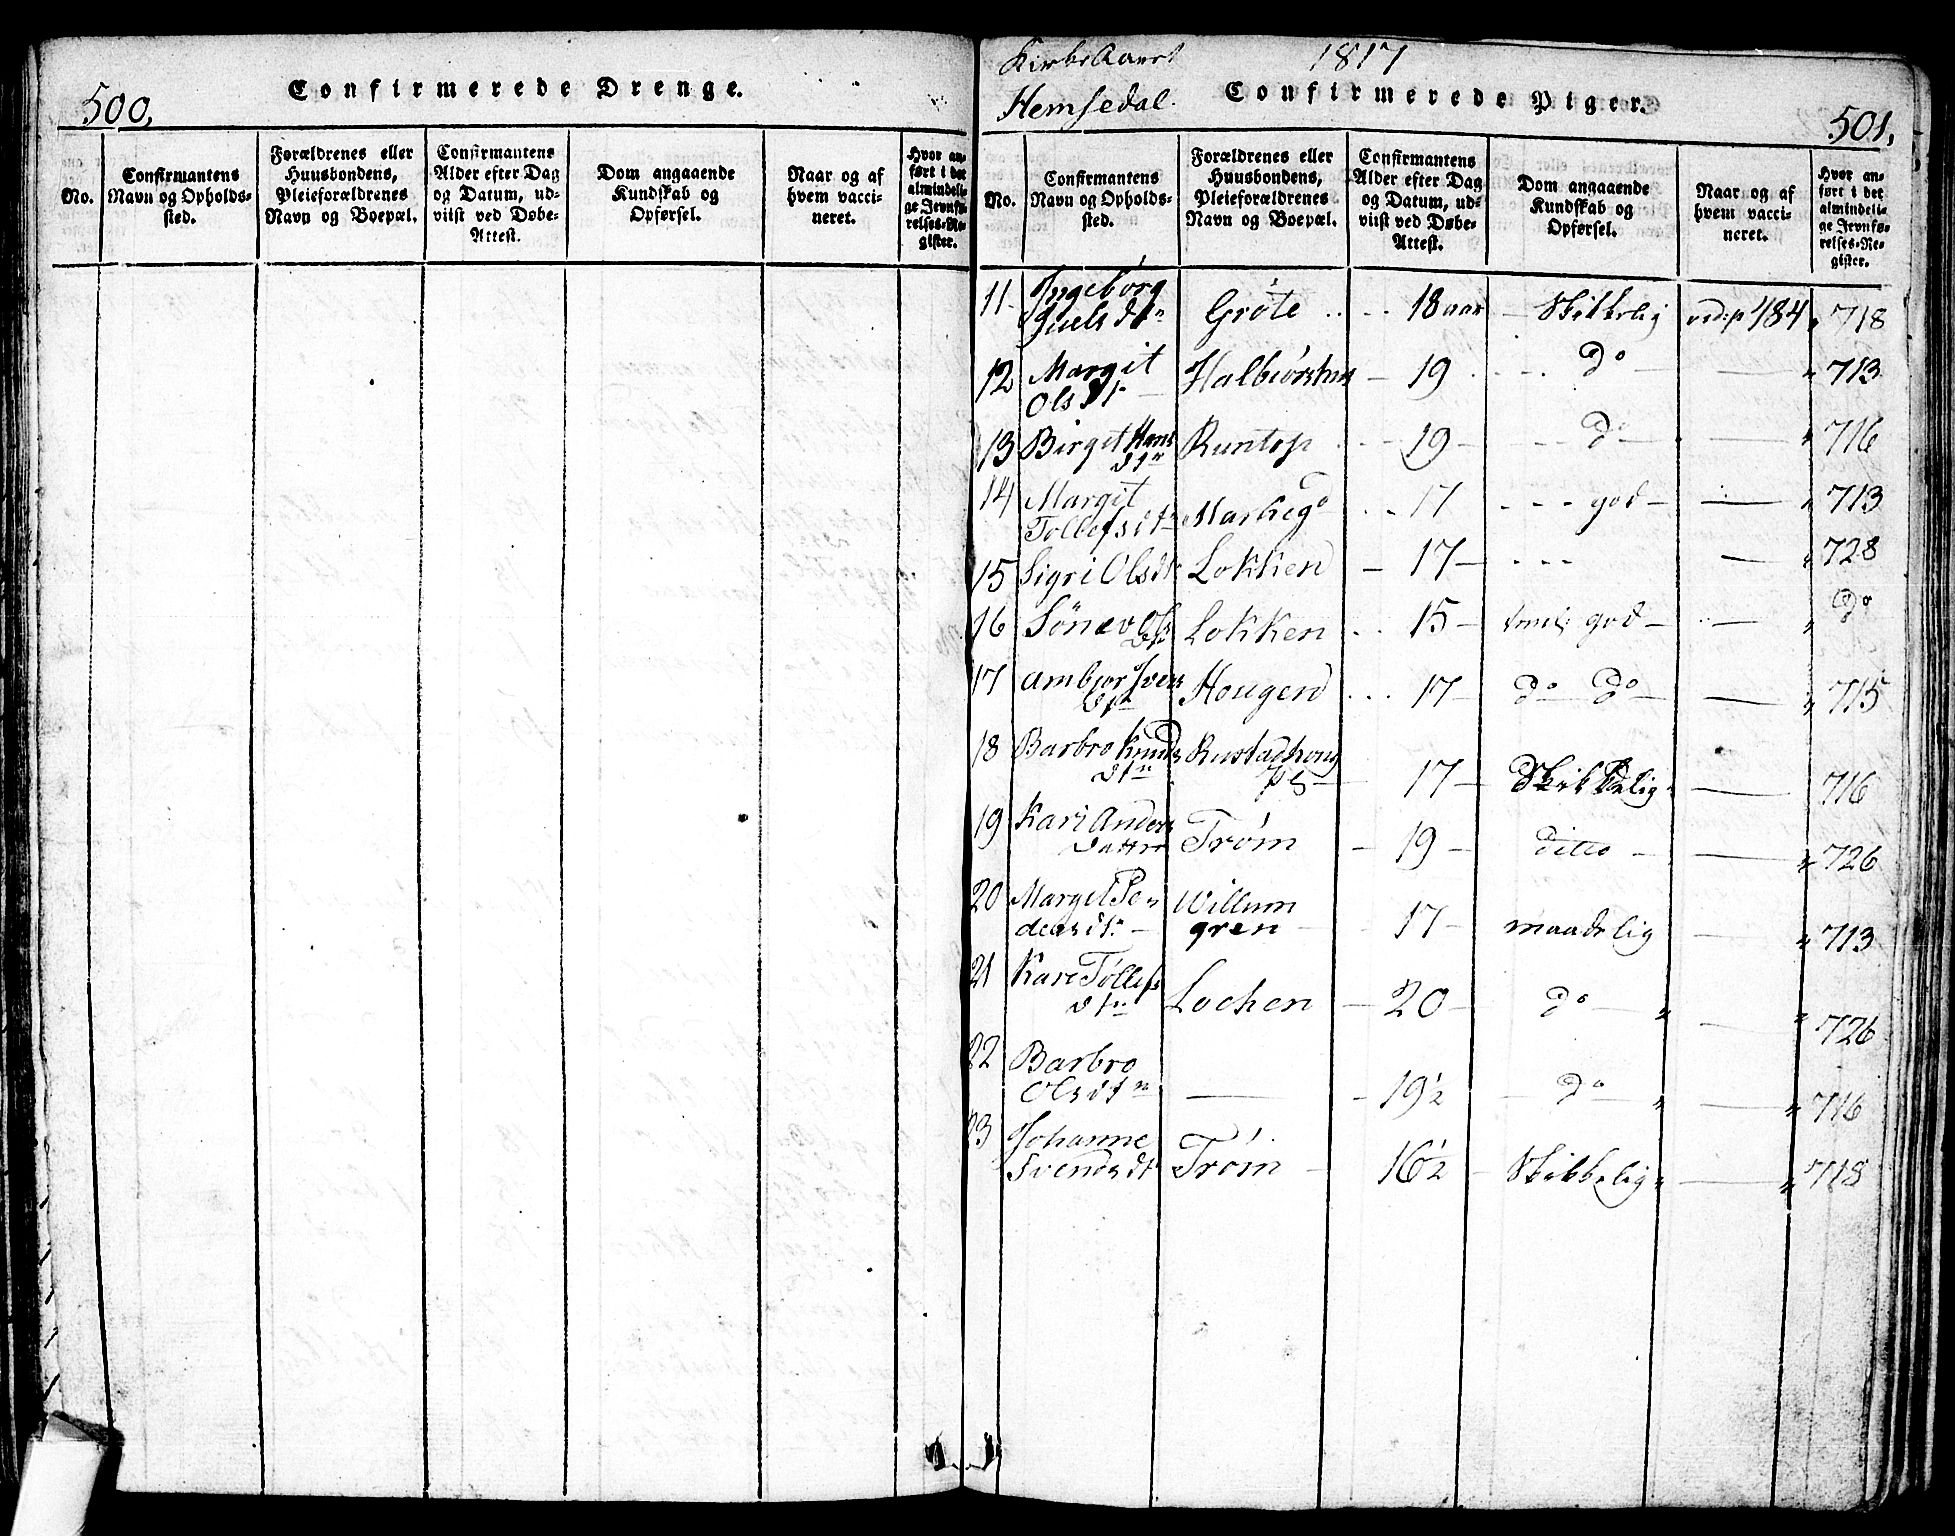 500.
Confirmerede Drenge.
No.
Confirmantens
Navn og Opholds-
sted.
Forældrenes eller
Huusbondens,
Pleieforældrenes
Navn og Boepæl.
Confirmantens
Alder efter Dag
og Datum, ud-
viist ved Døbe-
Attest.
Dom angaaende
Kundskab og
Opførsel.
Naar og af
hvem vacci-
neret.
Hvor an-
ført i det
almindeli-
ge Jevnfø-
relses-Re-
gister.
Kirke Aaret 1817
Hemsedal.
Confirmerede Piger.
501.
No.
Confirmantens
Navn og Opholds-
sted.
Forældrenes eller
Huusbondens,
Pleieforældrenes
Navn og Boepæl.
Confirmantens
Alder efter Dag
og Datum, ud-
viist ved Døbe-
Attest.
Dom angaaende
Kundskab og
Opførsel.
Naar og af
hvem vacci-
neret.
Hvor an-
ført i det
almindeli-
ge Jevnfø-
relses-Re-
gister.
11 Ingeborg
Juelsdtr Grøte 18 aar Skikkelig vid: p 484 718
12 Margit
Olsdtr 19 do 713
13 Birgit Hans
dtr Runtop 19 do 716
14 Margit
Tollefsdtr Markegd 17 god 713
15 Sigri Olsdtr Lokken 17 728
16 Sönev Ols
Dtr Lokken 15 god do
17 Ambjor Svens
Dtr Hougen 17 do do 715
18 Barbro Knuds
dtr Rustadhoug
pl 17 Skikkelig 716
19 Kari Anders
datter Trøm 19 ditto 726
20 Margit Pe-
dersdtr Willum
gren 17 maadelig 713
21 Kari Tollefs
dtr Lochen 20 do 726
22 Barbro
Olsdtr 19½ do 716
23 Johanne
Svendsdtr Trøm 16½ Skikkelig 718